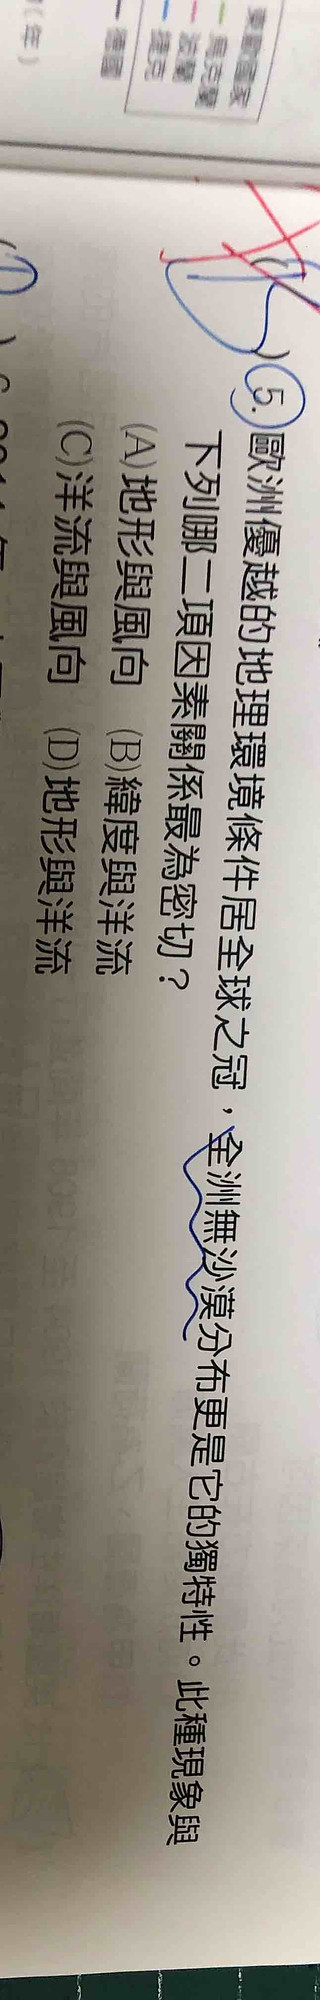 東歐國家
馬克蘭
波蘭
捷克
德國
(年)
)5.歐洲優越的地理環境條件居全球之冠，全洲無沙漠分布更是它的獨特性。此種現象與
下列哪二項因素關係最為密切？
(A)地形與風向 (B)緯度與洋流
(C)洋流與風向 (D)地形與洋流